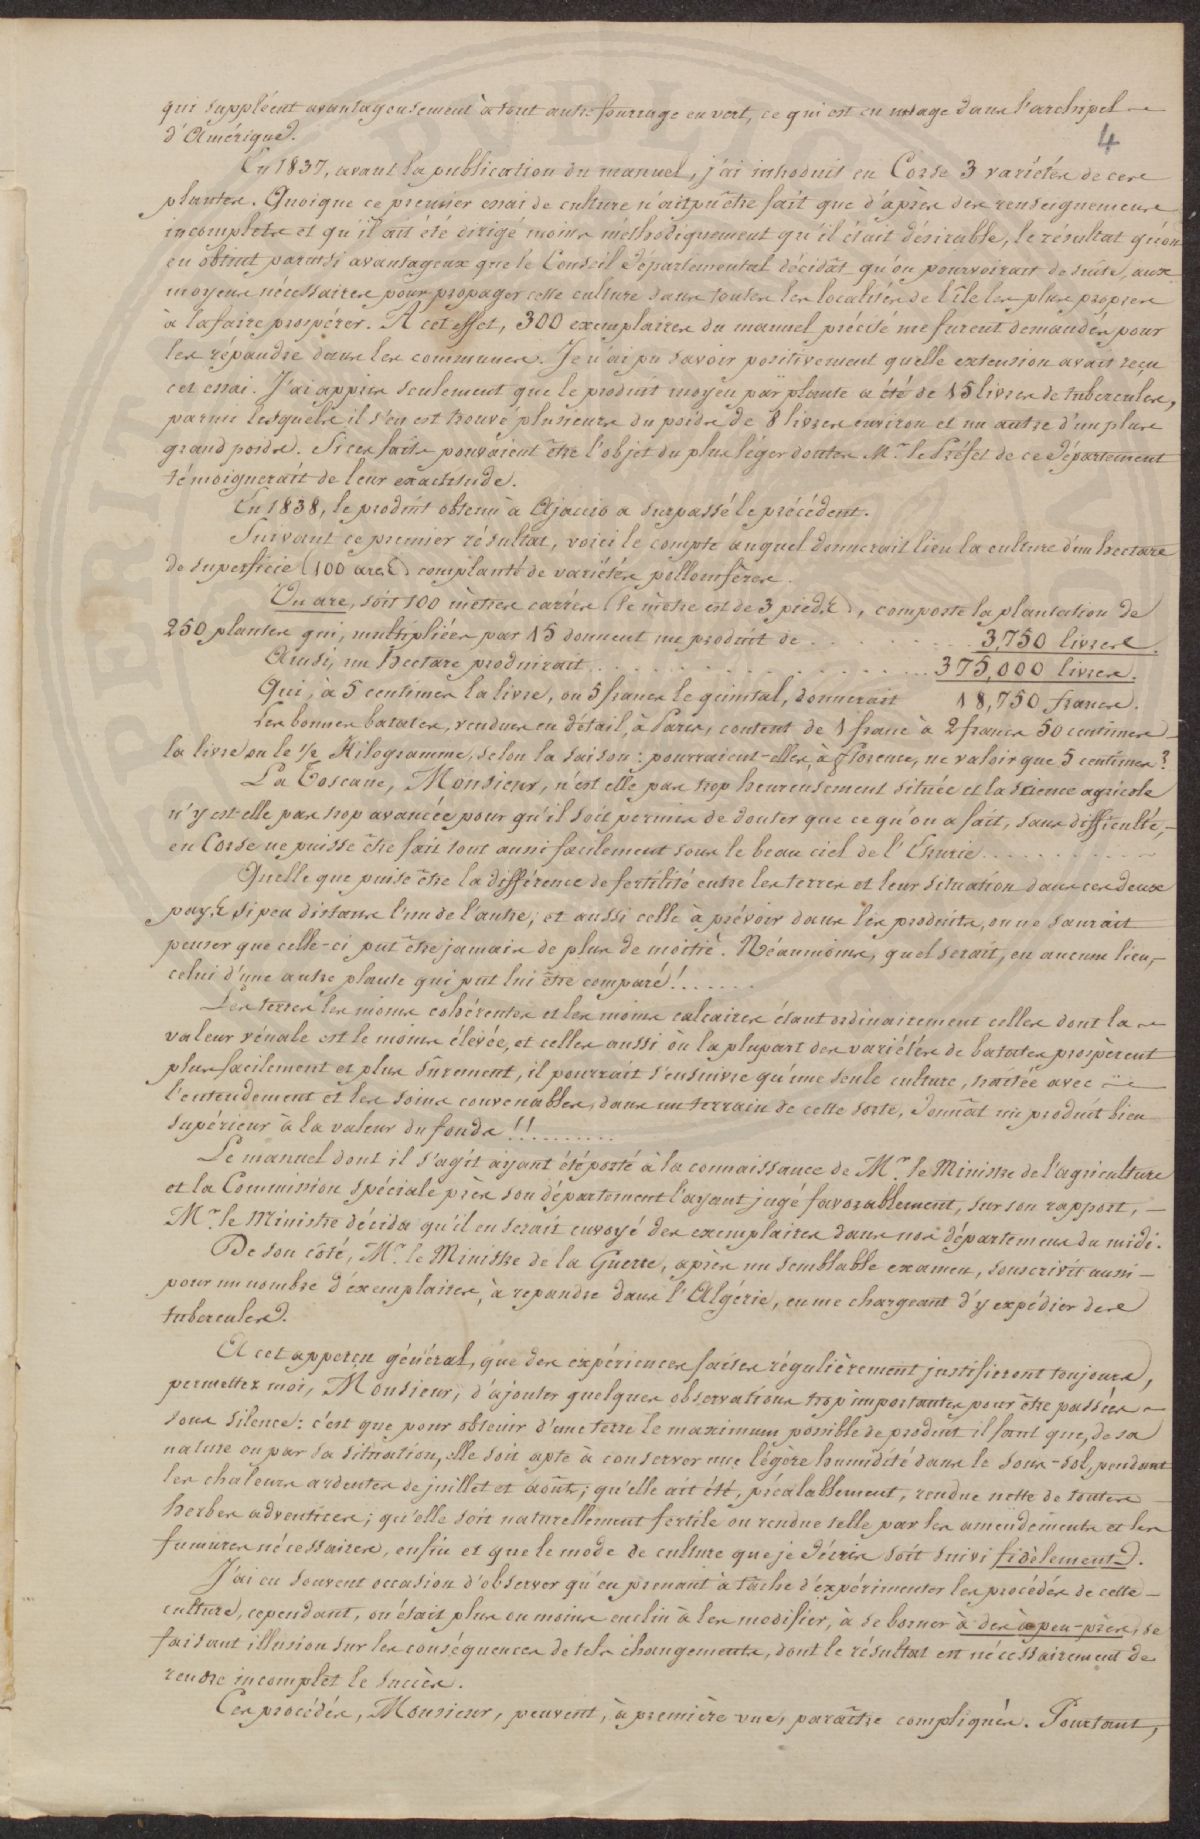 qui suppléent avantageusement à tout autre fourrage en vert, ce qui est en usage dans l'archipel
d'Amérique.
4
En 1837, avant la publication du manuel, j'ai introduit en Corse 3 variétés de ces
plantes. Quoique ce premier essai de culture n'ait pu être fait que d'après des renseignemens
incomplets et qu'il ait été dirigé moins méthodiquement qu'il était désirable, le résultat qu'on
en obtint parut si avantageux que le Conseil Départemental décidât qu'on pourvoirait de suite, aux
moyens nécessaires pour propager cette culture dans toutes les localités de l'île les plus propres
à la faire prospérer. A cet effet, 300 exemplaires du manuel précité me furent demandés pour
les répandre dans les communes. Je n'ai pu savoir positivement quelle extension avait reçu
cet essai. J'ai appris seulement que le produit moyen par plante a été de 15 livres de tubercules,
parmi lesquels il s'en est trouvé plusieurs du poids de 8 livres environ et un autre d'un plus
grand poids. Si ces faits pouvaient être l'objet du plus léger doute Mr. le Préfet de ce Département
témoignerait de leur exactitude.
En 1838, le produit obtenu à Ajaccio a surpassé le précédent.
Suivant ce premier résultat, voici le compte auquel donnerait lieu la culture d'un hectare
de superficie (100 ares) complanté de variétés pollomfères.
Un are, soit 100 mètres carrés (le mètre est de 3 pieds), comporte la plantation de
250 plantes qui, multipliées par 15 donnent un produit de . . . . . . . 3,750 livres.
Ainsi, un hectare produirait . . . . . . . . . . . . . . . 375,000 livres.
Qui, à 5 centimes la livre, ou 5 francs le quintal, donnerait 18,750 francs.
Les bonnes batates, vendues en détail, à Paris, coutent de 1 franc à 2 francs 50 centimes
la livre ou le 1/2 Kilogramme, selon la saison : pourraient-elles, à Florence, ne valoir que 5 centimes ?
La Toscane, Monsieur, n'est elle pas trop heureusement située et la science agricole
n'y est-elle pas trop avancée pour qu'il soit permis de douter que ce qu'on a fait, sans difficulté,
en Corse ne puisse être fait tout aussi facilement sous le beau ciel de l'Etrurie . . . . . . . . . .
Quelle que puise être la différence de fertilité entre les terres et leur situation dans ces deux
pays si peu distans l'un de l'autre, et aussi celle à prévoir dans les produits, on ne saurait
penser que celle-ci put être jamais de plus de moitié. Néanmoins, quel serait, en aucun lieu,
celui d'une autre plante qui put lui être comparé ! . . . . . . .
Les terres les moins cohérentes et les moins calcaires étant ordinairement celles dont la
valeur vénale est le moins élévée, et celles aussi où la plupart des variétés de batates prospèrent
plus facilement et plus sûrement, il pourrait s'ensuivre qu'une seule culture, traitée avec
l'entendement et les soins convenables, dans un terrain de cette sorte, donnât un produit bien
supérieur à la valeur du fonds !! . . . . . . . . .
Le manuel dont il s'agit ayant été porté à la connaissance de Mr. le Ministre de l'agriculture
et la Commission spéciale près son département l'ayant jugé favorablement, sur son rapport,
Mr. le Ministre décida qu'il en serait envoyé des exemplaires dans nos départemens du midi.
De son côté, Mr. le Ministre de la Guerre, après un semblable examen, souscrivit aussi
pour un nombre d'exemplaires, à repandre dans l'Algérie, en me chargeant d'y expédier des
tubercules.
A cet apperçu général, que des expériences faites régulièrement justifieront toujours,
permettez moi, Monsieur, d'ajouter quelques observations trop importantes pour être passées
sous silence : c'est que pour obtenir d'une terre le maximum possible de produit il faut que, de sa
nature ou par sa situation, elle soit apte à conserver une légère humidité dans le sous-sol, pendant
les chaleurs ardentes de juillet et août ; qu'elle ait été, préalablement, rendue nette de toutes
herbes adventices ; qu'elle soit naturellement fertile ou rendue telle par les amendements et les
fumures nécessaires, enfin et que le mode de culture que je décris soit suivi fidèlement.
J'ai eu souvent occasion d'observer qu'en prenant à tâche d'expérimenter les procédés de cette
culture, cependant, on était plus ou moins enclin à les modifier, à se borner à des à peu-près, se
faisant illusion sur les conséquences de tels changements, dont le résultat est nécessairement de
rendre incomplet le succès.
Ces procédés, Monsieur, peuvent, à première vue, paraître compliqués. Pourtant,